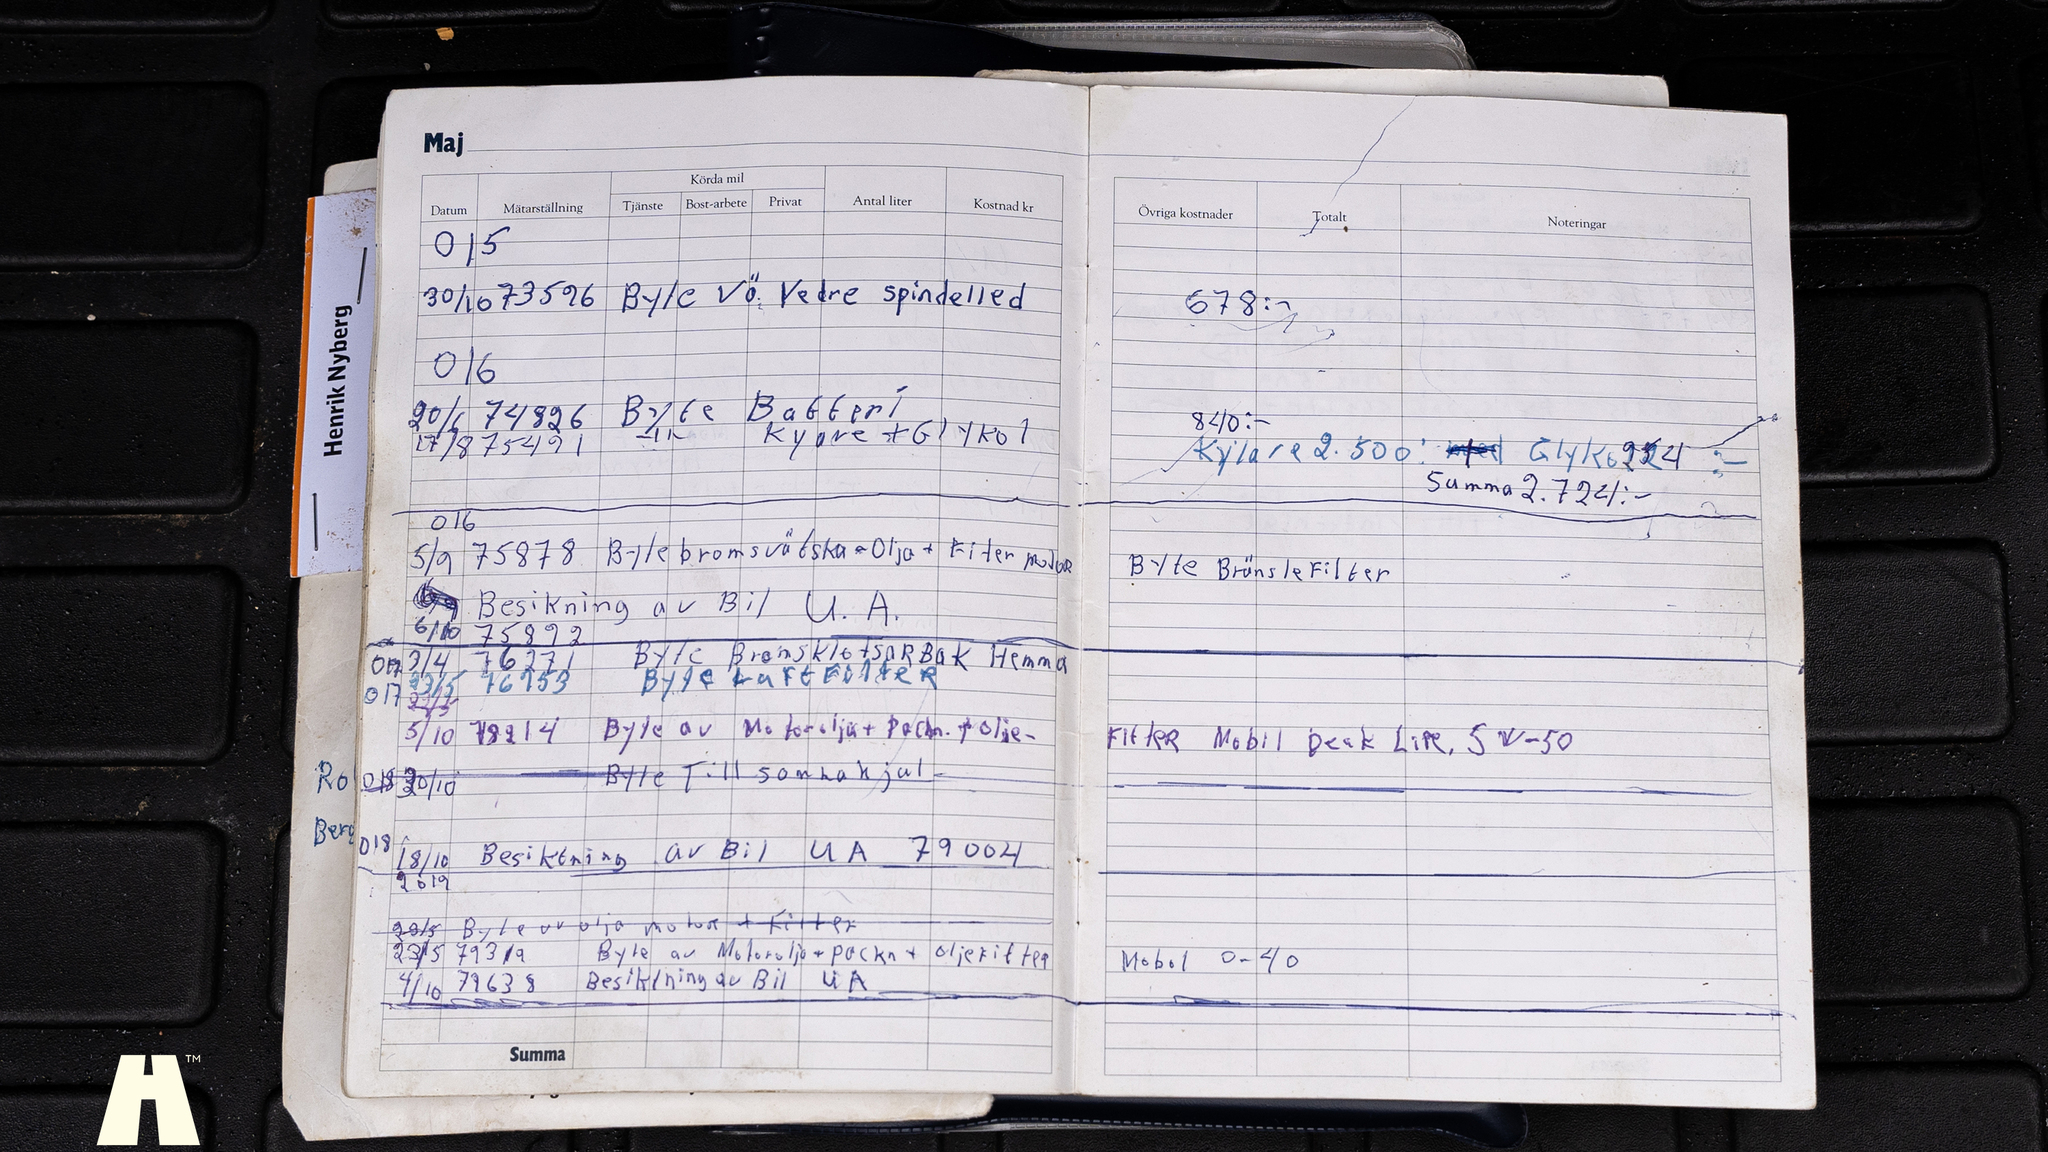 Maj
Körda mil
Datum Mätarställning Tjänste Bost-arbete Privat Antal liter Kostnad kr Övriga kostnader Totalt Noteringar
015
30/10 73596 Byte Vö. Vedre spindelled 678:-
016
20/6 74826 Byte Batteri 840:-
17/8 75491 -11- Kylare + Glykol Kylare 2.500: Glyko 224 :-
Summa 2.724:-
016
5/9 75878 Byte bromsvätska - Olja + Filter motor Byte Bränslefilter
Besikning av Bil U.A.
6/10 75892
017 3/4 76271 Byte Bromsklotsar Bak Hemma
017 23/5 76953 Byte Luftfilter
5/10 78214 Byte av Motorolja + Packn. + olje- Filter Mobil Peak Life, 5W-50
Ro 018 20/10 Byte Till sommahjul
Berg
018 18/10 Besiktning av Bil UA 79004
2019
20/5 Byte av olja motor + Filter
23/5 79319 Byte av Motorolja + packn + oljefilter Mobol 0-40
4/10 79638 Besiktning av Bil UA
Summa
Henrik Nyberg
H™